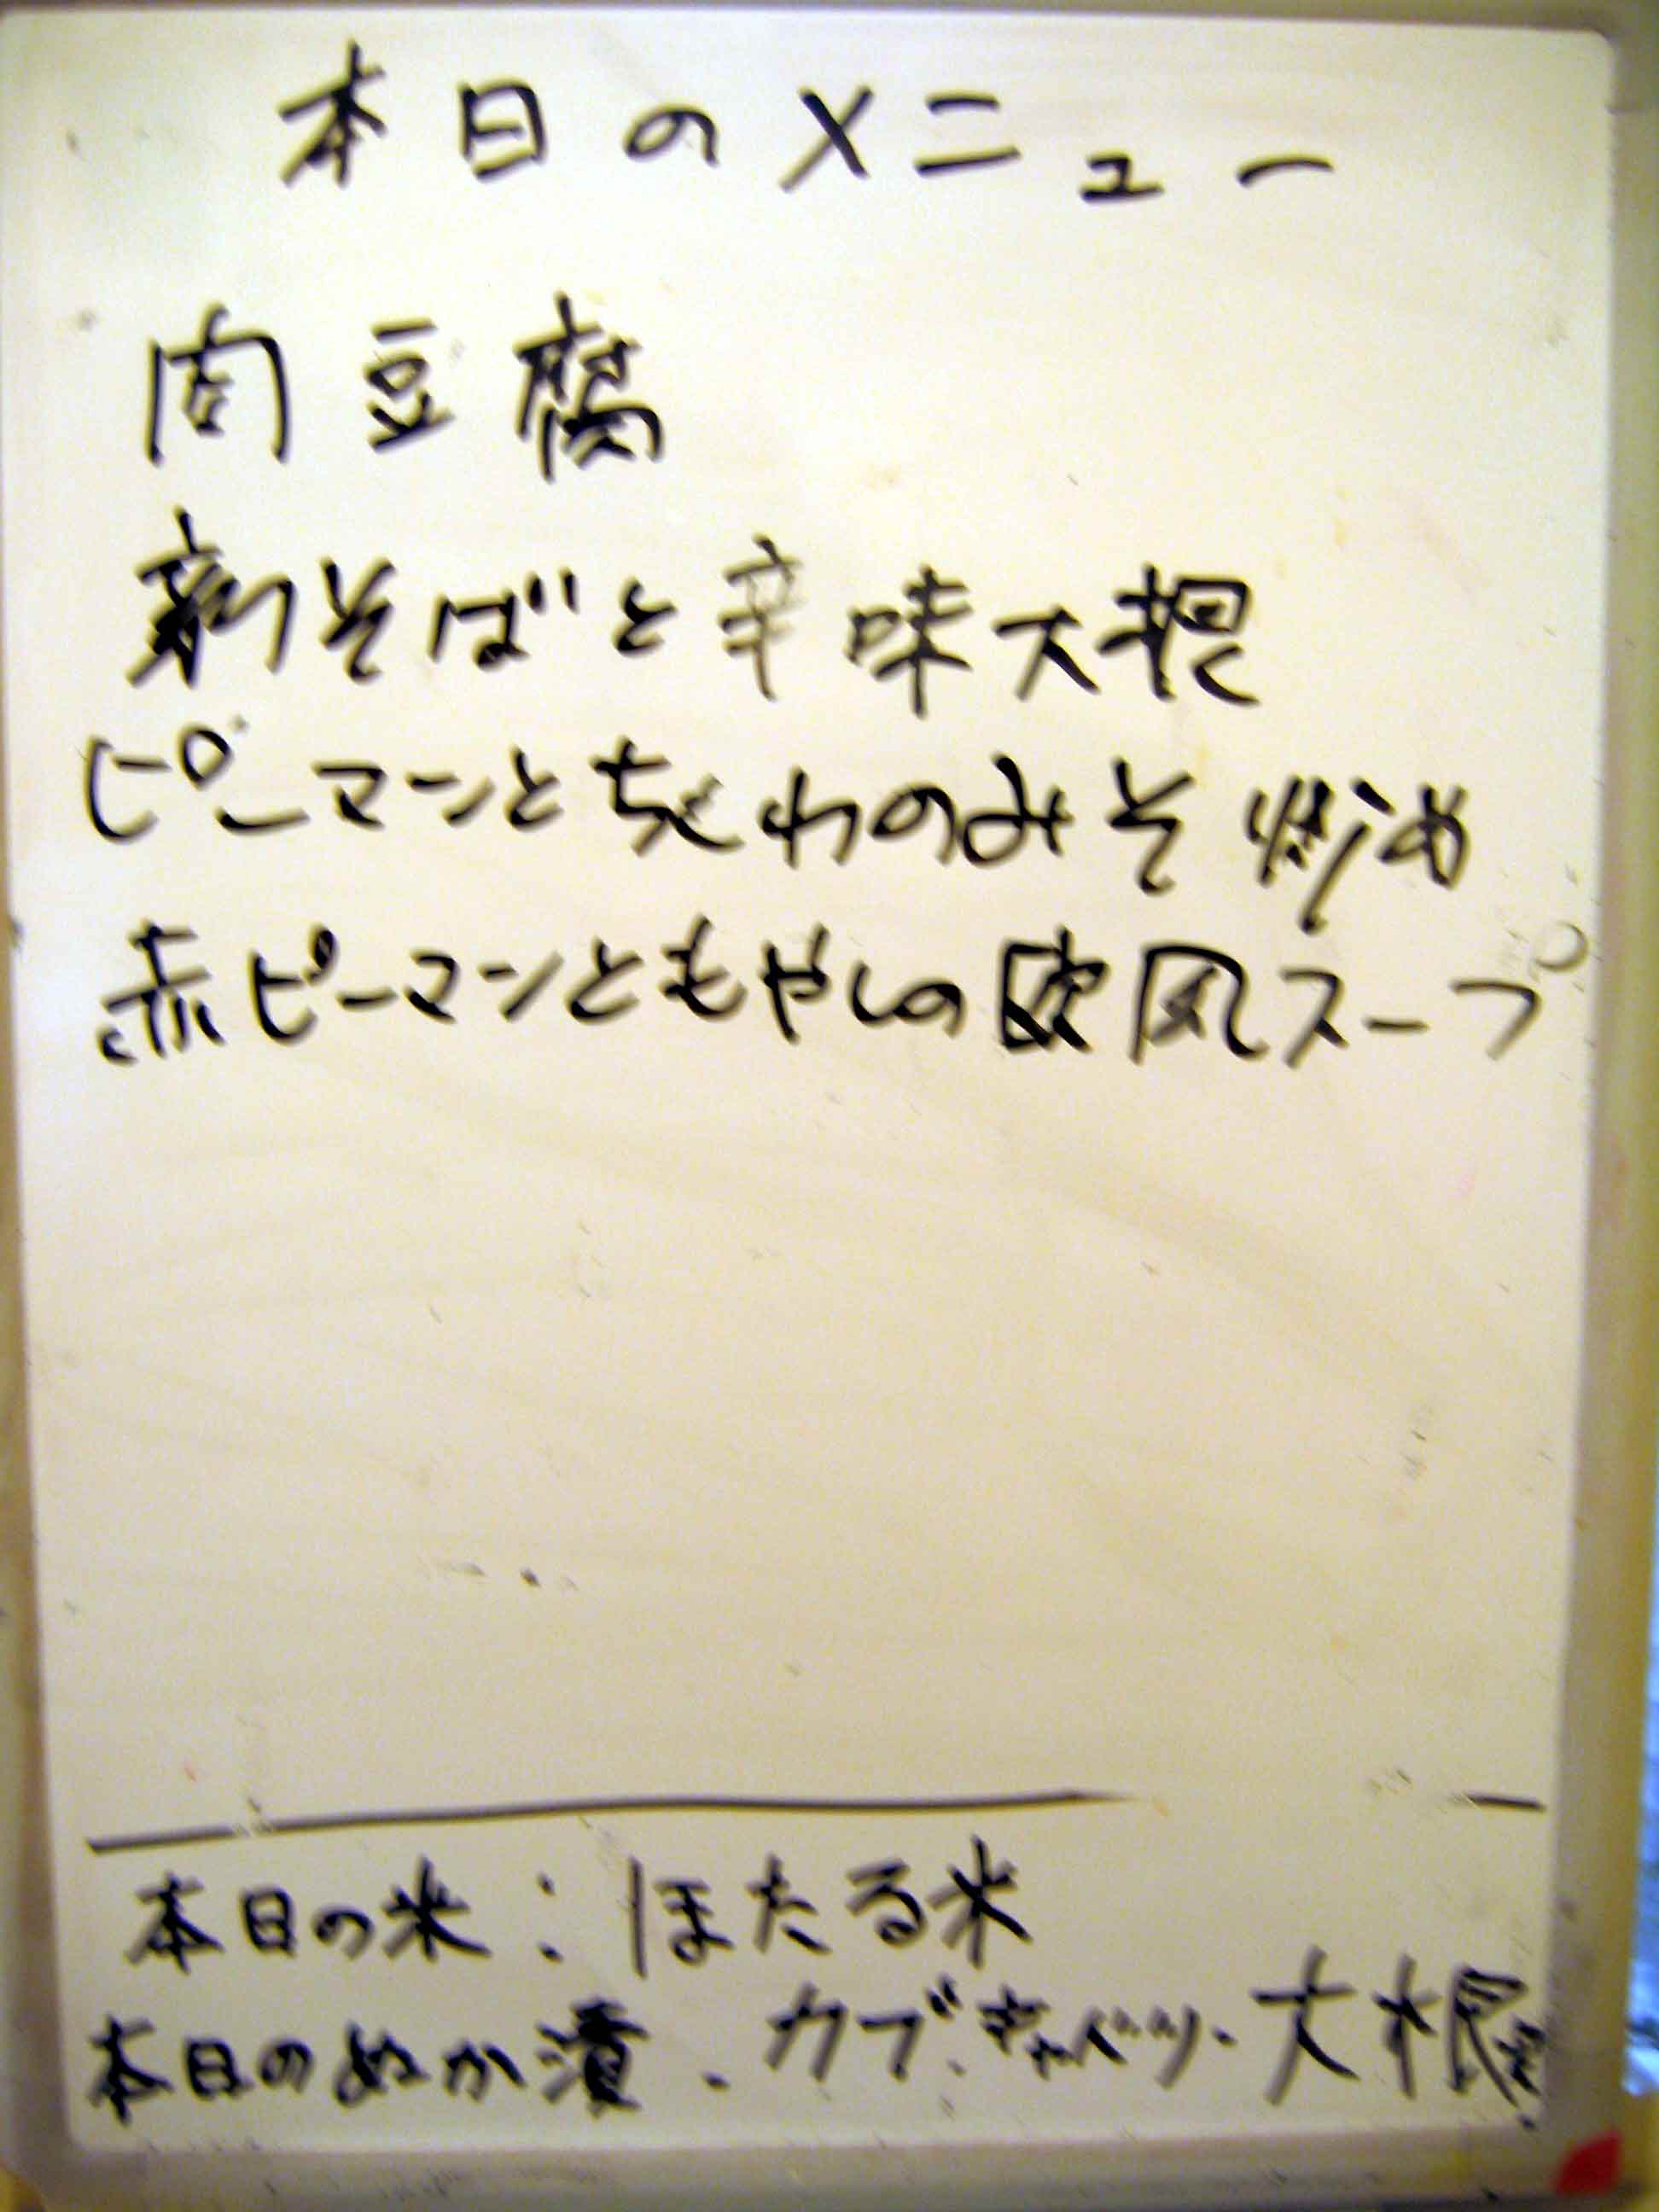 本日のメニュー
肉豆腐
新そばと辛味大根
ピーマンとちくわのみそ炒め
赤ピーマンともやしの欧風スープ
本日の米:ほたる米
本日のぬか漬.カブ.キャベツ.大根